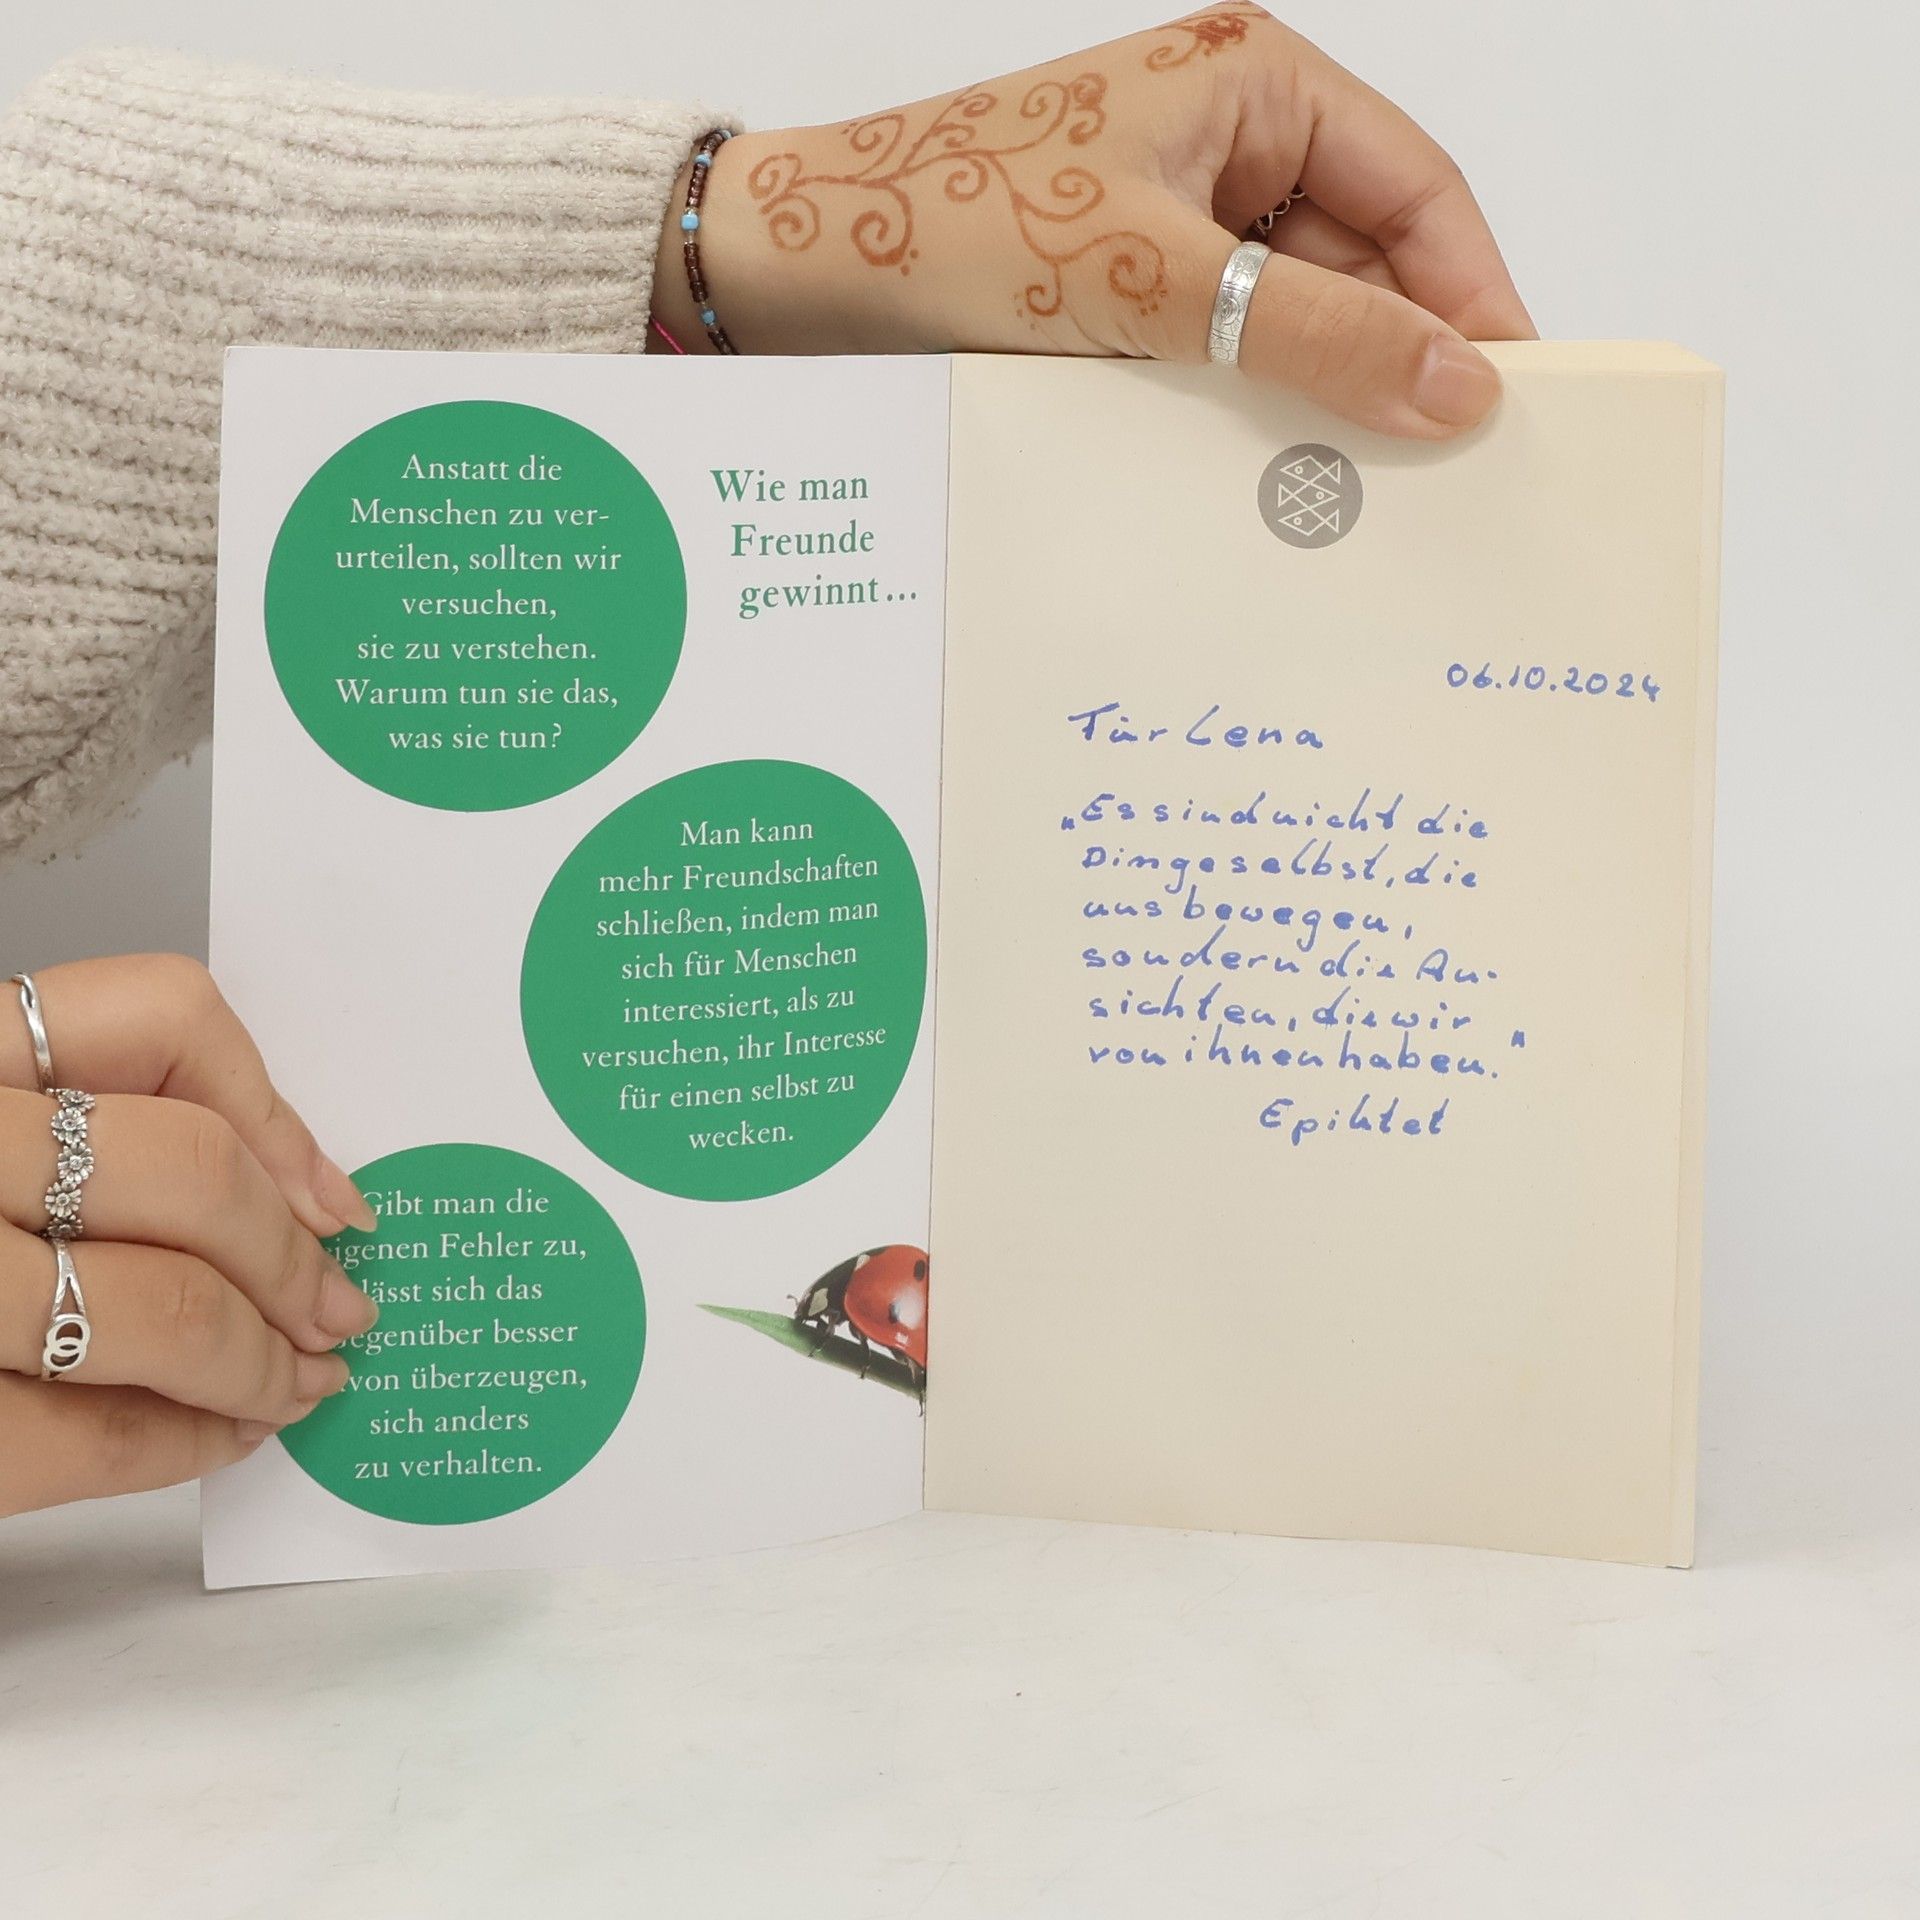 Anstatt die
Menschen zu ver-
urteilen, sollten wir
versuchen,
sie zu verstehen.
Warum tun sie das,
was sie tun?
Wie man
Freunde
gewinnt...
Man kann
mehr Freundschaften
schließen, indem man
sich für Menschen
interessiert, als zu
versuchen, ihr Interesse
für einen selbst zu
wecken.
Gibt man die
eigenen Fehler zu,
lässt sich das
Gegenüber besser
davon überzeugen,
sich anders
zu verhalten.
06.10.2024
Für Lena
„Es sind nicht die
Dinge selbst, die
uns bewegen,
sondern die An-
sichten, die wir
von ihnen haben."
Epiktet